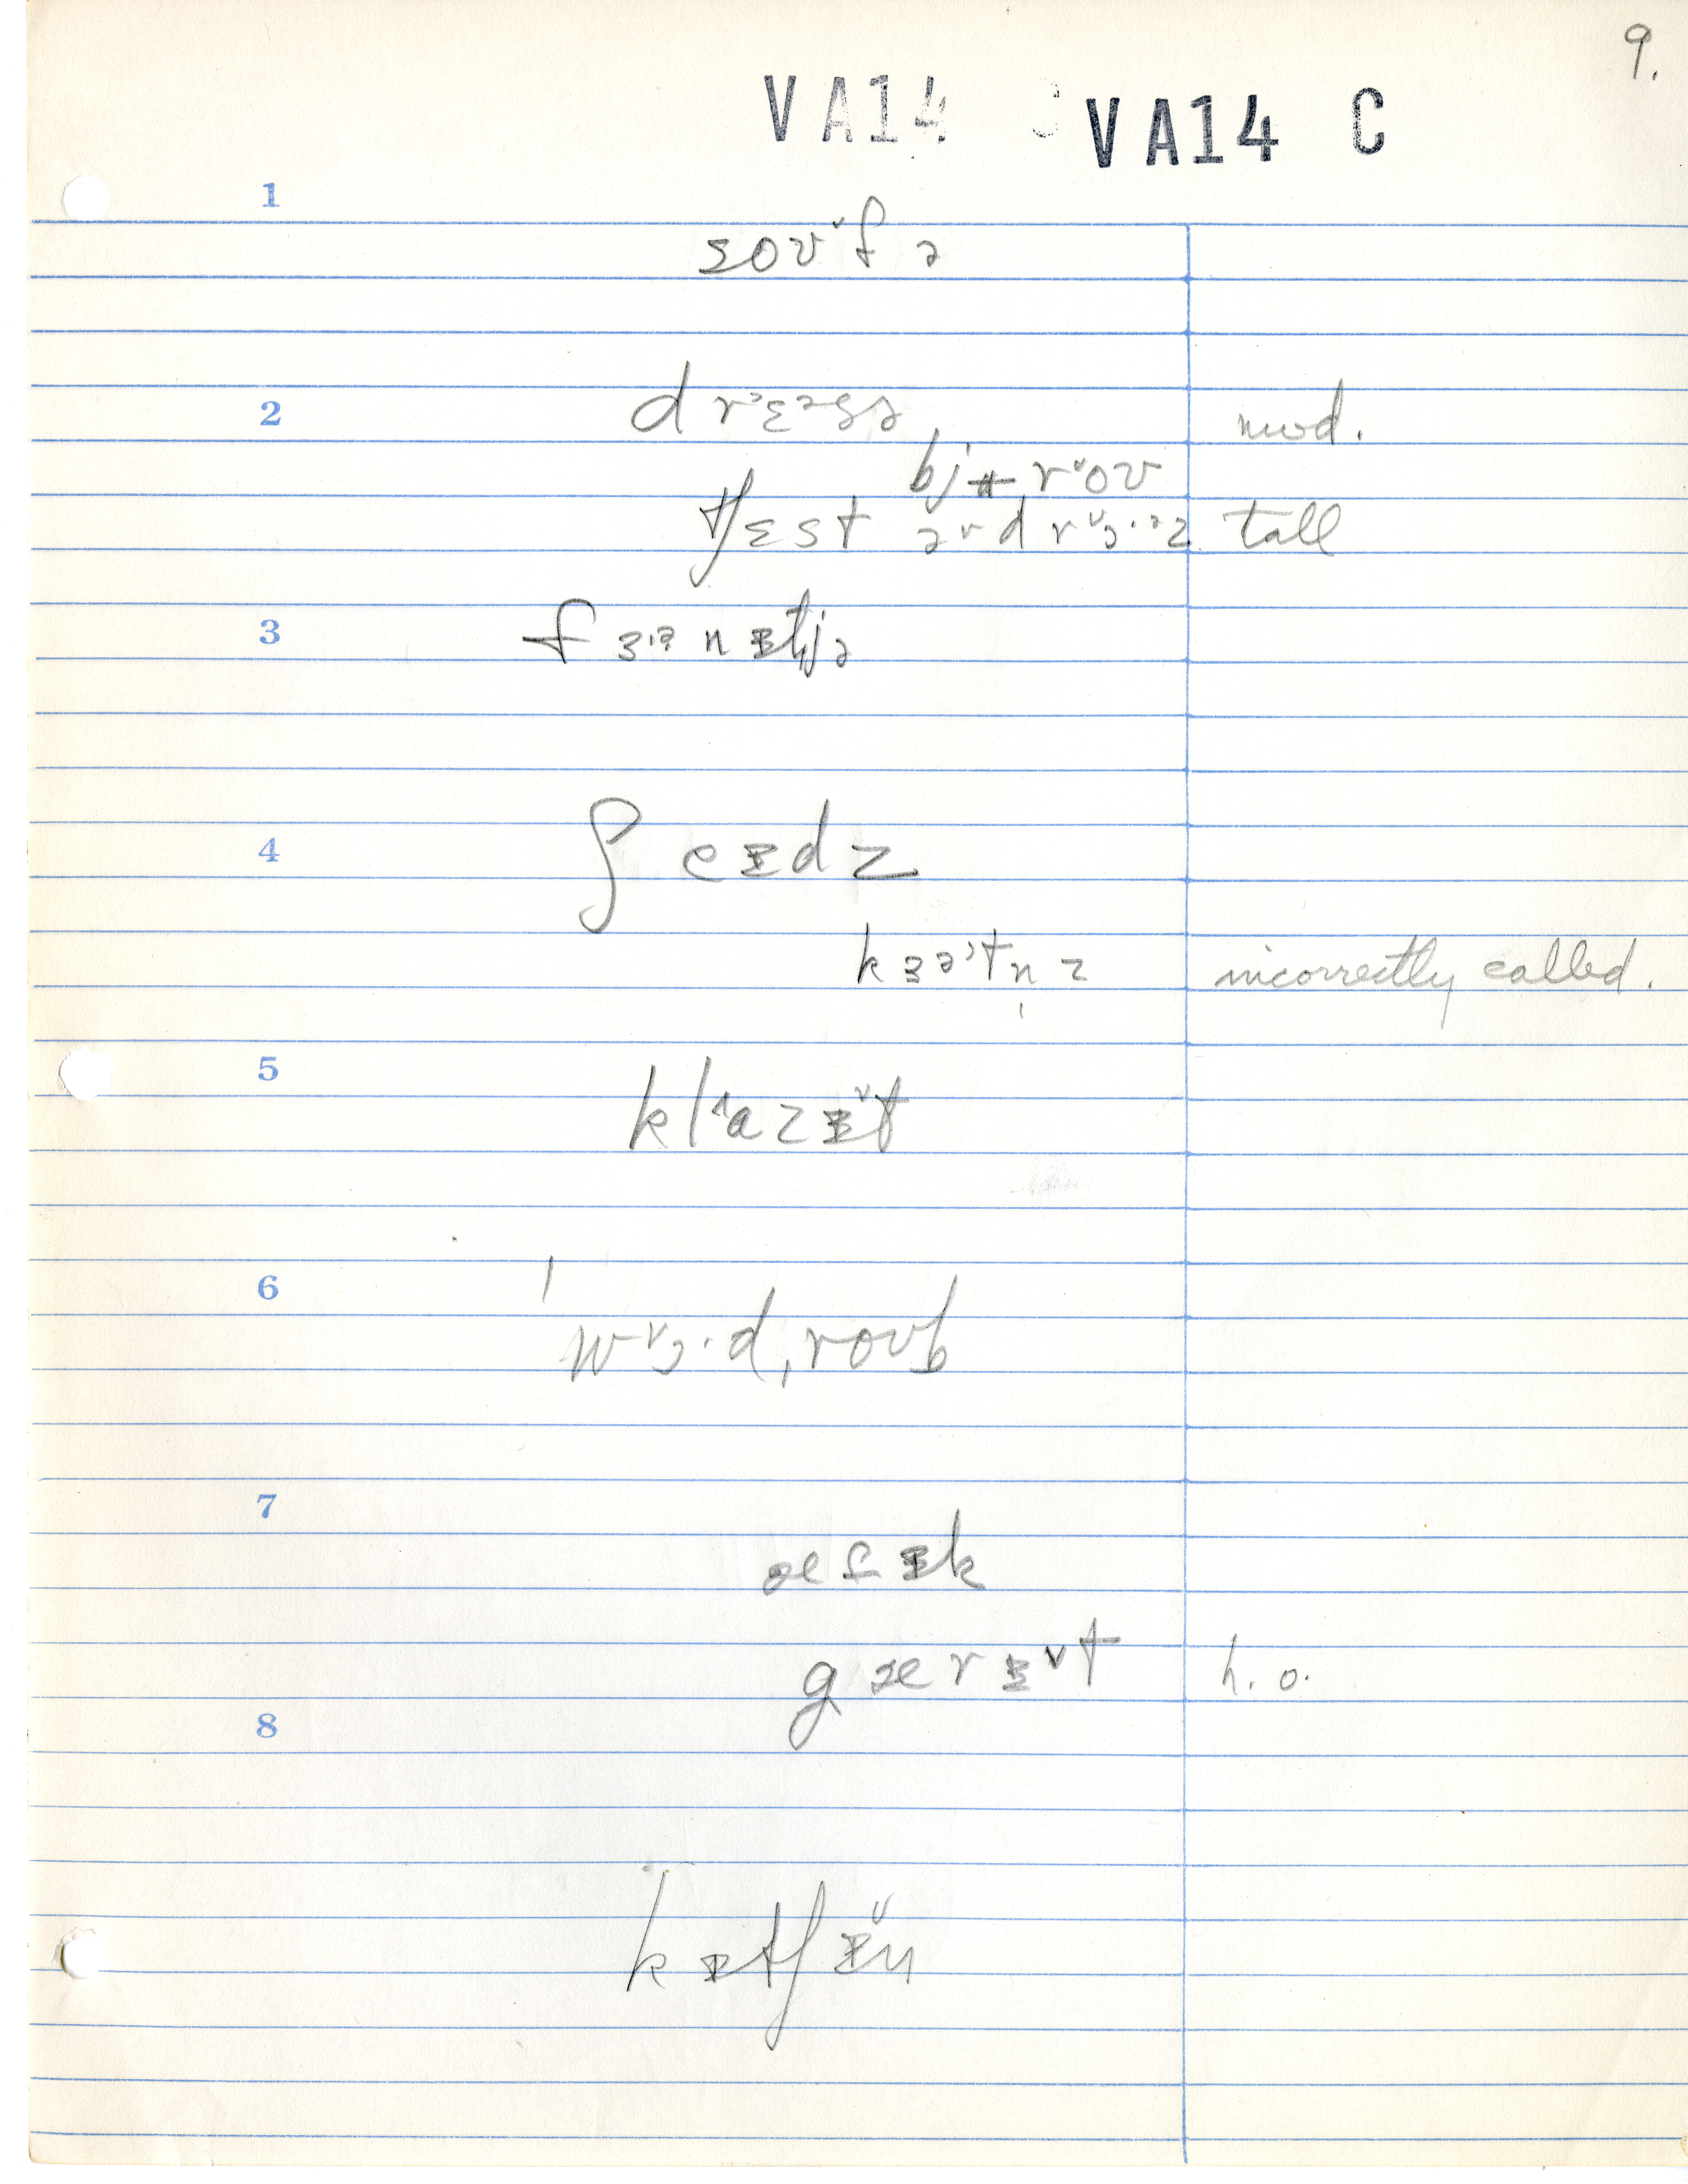 9.
VA14 C VA14 C
1
soʊ˅fə
2
drɛəsə mod.
bjʉr˅oʊ
tʃɛst ə˅ dr˅ɔ·əz tall
3
fɜ·ənɪtjə
4
ʃeɪdz
kɜətn̩z incorrectly called.
5
klazɪ˅t
6
ˈw˅ɔ·dˌroʊb
7
ætɪk
gærɪ˅t h. o.
8
kɪtʃɪ˅n